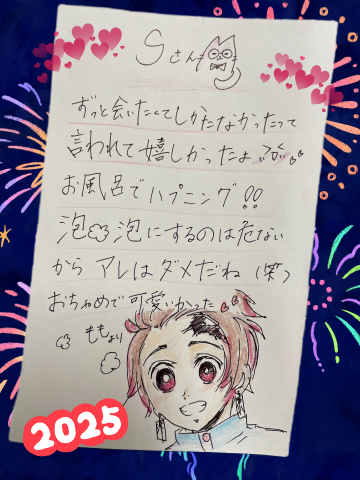 Sさん
ずっと会いたくてしかたなかったって
言われて嬉しかったよ
お風呂でハプニング!!
泡泡にするのは危ない
から アレはダメだね (笑)
おちゃめで可愛いかった
ももより
2025